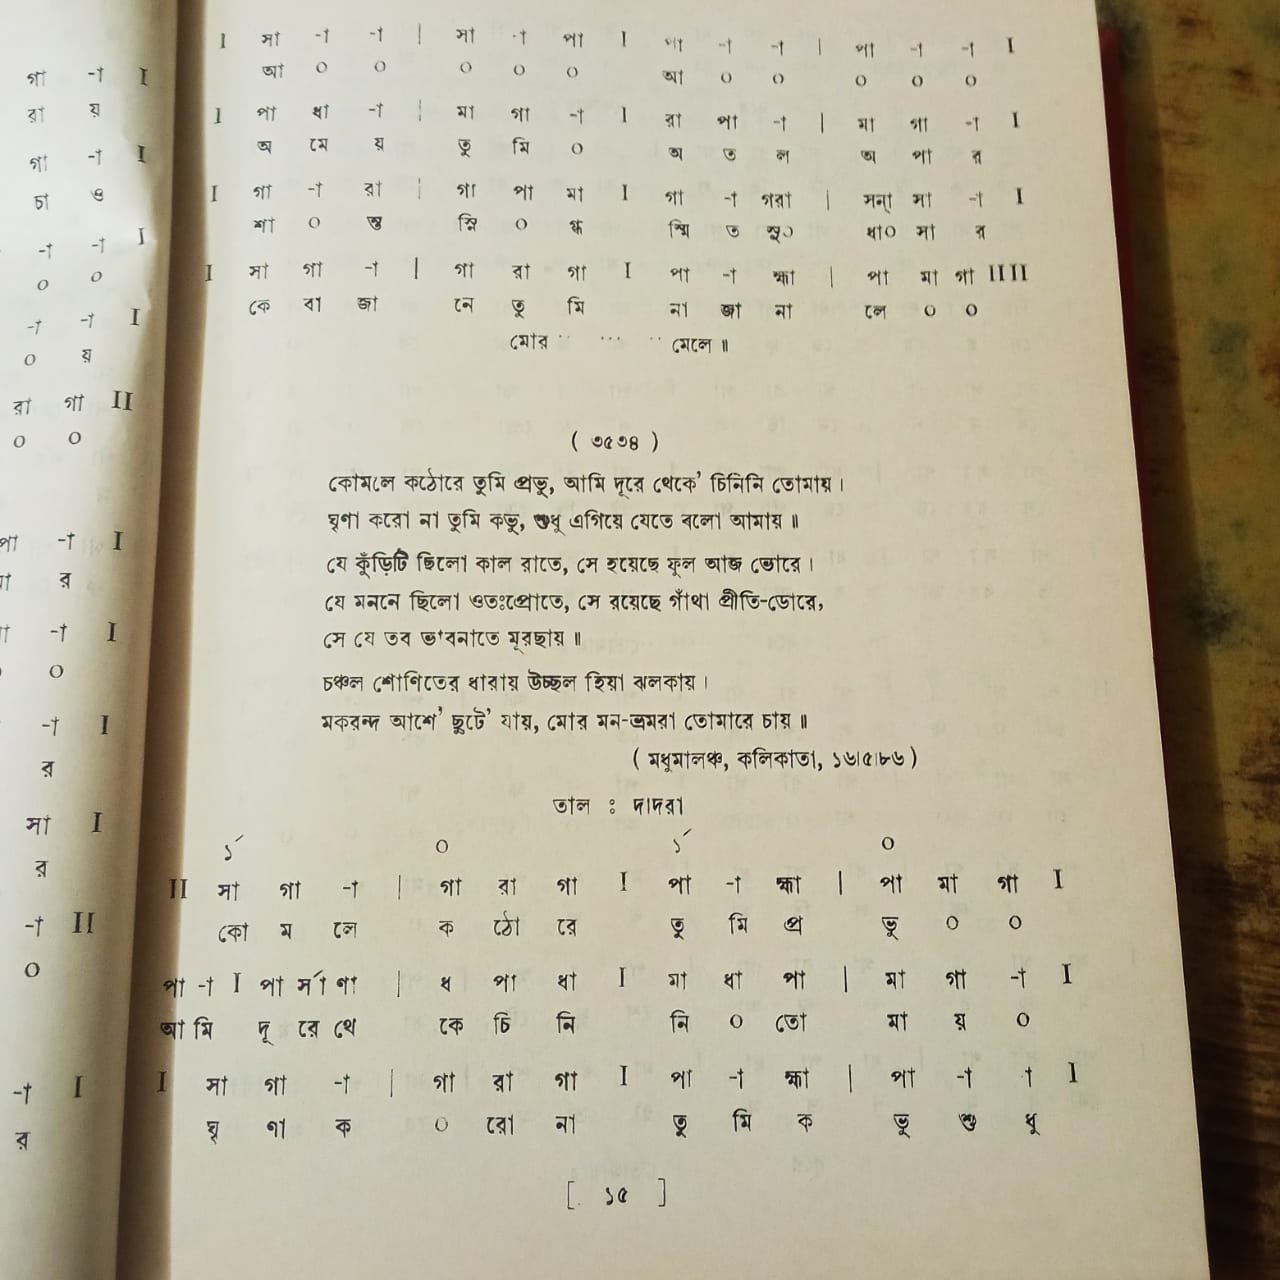 গা -া I
রা য়
গা -া I
চা ও
-া -া I
০ ০
-া -া I
০ য়
রা গা II
০ ০
পা -া I
র
-া I
০
-া I
র
সা I
র
-া II
০
-া I
র
I সা -া -া | সা -া পা I পা -া -া | পা -া -া I
আ ০ ০ ০ ০ ০ আ ০ ০ ০ ০ ০
I পা ধা -া | মা গা -া I রা পা -া | মা গা -া I
অ মে য় তু মি ০ অ ত ল অ পা র
I গা -া রা | গা পা মা I গা -া গরা | সন্‌া সা -া I
শা ০ ন্ত স্নি ০ গ্ধ স্মি ত সু০ ধা০ সা র
I সা গা -া | গা রা গা I পা -া হ্মা | পা মা গা IIII
কে বা জা নে তু মি না জা না লে ০ ০
মোর ·· ··· ·· মেলে ॥
( ৩৫৩৪ )
কোমলে কঠোরে তুমি প্রভু, আমি দূরে থেকে' চিনিনি তোমায় ।
ঘৃণা করো না তুমি কভু, শুধু এগিয়ে যেতে বলো আমায় ॥
যে কুঁড়িটি ছিলো কাল রাতে, সে হয়েছে ফুল আজ ভোরে ।
যে মননে ছিলো ওতঃপ্রোতে, সে রয়েছে গাঁথা প্রীতি-ডোরে,
সে যে তব ভাবনাতে মূরছায় ॥
চঞ্চল শোণিতের ধারায় উচ্ছল হিয়া ঝলকায় ।
মকরন্দ আশে' ছুটে' যায়, মোর মন-ভ্রমরা তোমারে চায় ॥
( মধুমালঞ্চ, কলিকাতা, ১৬।৫।৮৬ )
তাল : দাদরা
১´ ০ ১´ ০
II সা গা -া | গা রা গা I পা -া হ্মা | পা মা গা I
কো ম লে ক ঠো রে তু মি প্র ভু ০ ০
পা -া I পা র্সা ণা | ধ পা ধা I মা ধা পা | মা গা -া I
আ মি দূ রে থে কে চি নি নি ০ তো মা য় ০
I সা গা -া | গা রা গা I পা -া হ্মা | পা -া া I
ঘৃ ণা ক ০ রো না তু মি ক ভু শু ধু
[ ১৫ ]